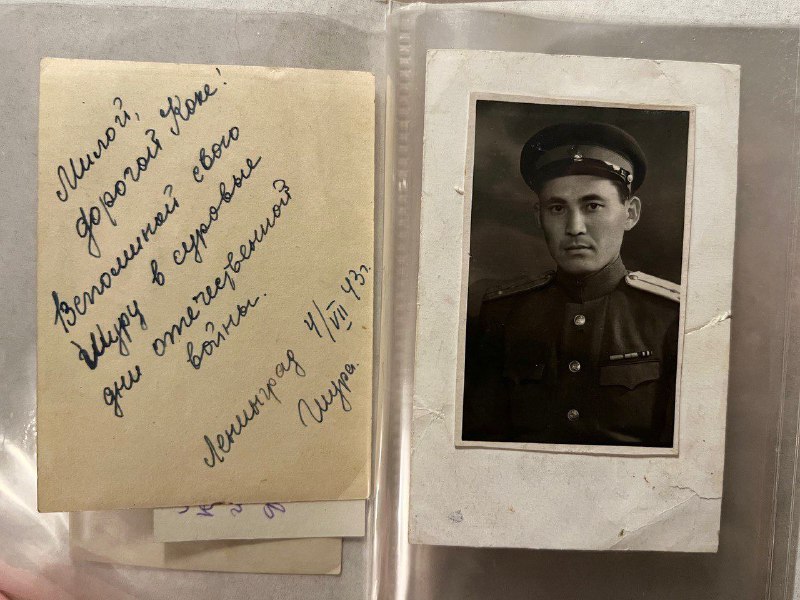 Милой,
дорогой Коке!
Вспоминай свого
Шуру в суровые
дни отечественной
войны.
Ленинград 4/VII 43г.
Шура.